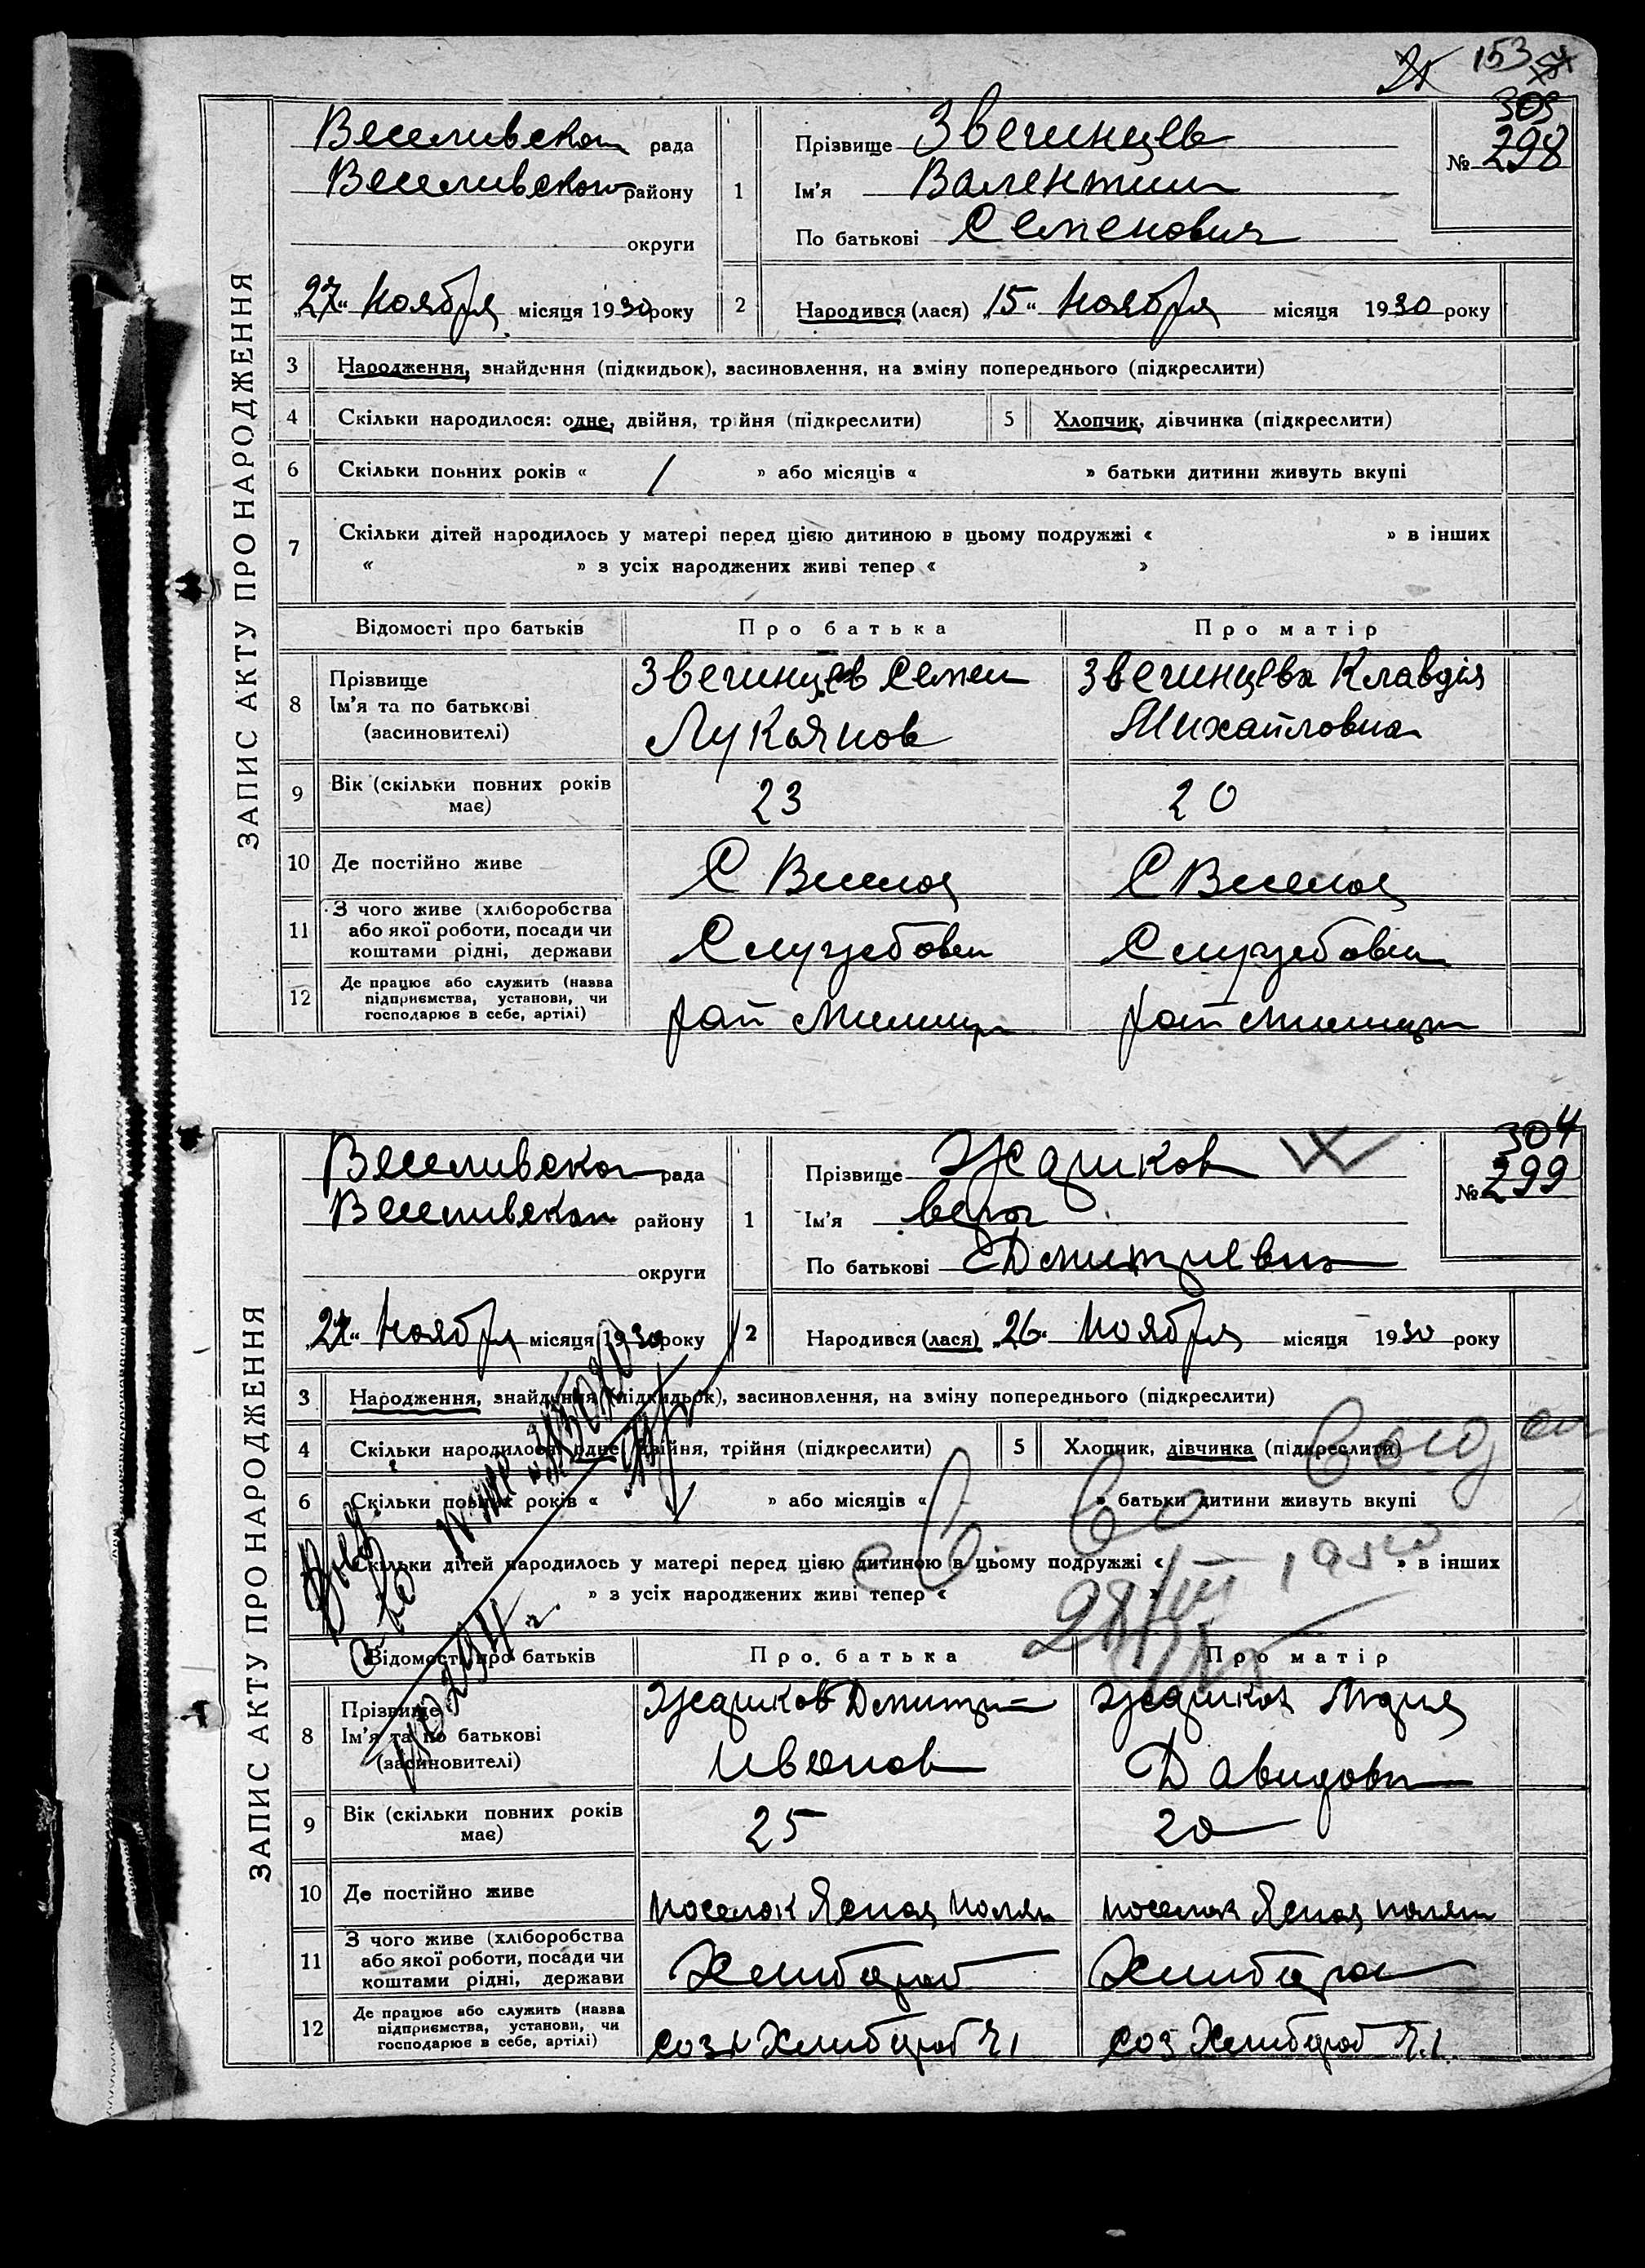 153
ЗАПИС АКТУ ПРО НАРОДЖЕННЯ
Веселивской рада
Веселивского району
округи
„27“ Ноября місяця 1930 року
1
Прізвище Звегинцев
Ім’я Валентин
По батькові Семенович
303
№ 298
2
Народився (лася) „15“ Ноября місяця 1930 року
3 Народження, знайдення (підкидьок), засиновлення, на зміну попереднього (підкреслити)
4 Скільки народилося: одне, двійня, трійня (підкреслити)
5 Хлопчик, дівчинка (підкреслити)
6 Скільки повних років « / » або місяців « » батьки дитини живуть вкупі
7 Скільки дітей народилось у матері перед цією дитиною в цьому подружжі « » в інших
« » з усіх народжених живі тепер « »
Відомості про батьків Про батька Про матір
8 Прізвище
Ім’я та по батькові
(засиновителі)
Звегинцев Семен
Лукьянов
Звегинцева Клавдія
Михайловна
9 Вік (скільки повних років
має)
23 20
10 Де постійно живе С Веселоя С Веселоя
11 З чого живе (хліборобства
або якої роботи, посади чи
коштами рідні, держави
Служебовец Служебовец
12 Де працює або служить (назва
підприємства, установи, чи
господарює в себе, артілі)
рай Милиции рай Милиции
ЗАПИС АКТУ ПРО НАРОДЖЕННЯ
Веселивской рада
Веселивской району
округи
„27“ Ноября місяця 1930 року
1
Прізвище
Ім’я Вера
По батькові Дмитриевна
304
№ 299
2
Народився (лася) „26“ Ноября місяця 1930 року
3 Народження, знайдення (підкидьок), засиновлення, на зміну попереднього (підкреслити)
4 Скільки народилося: одне, двійня, трійня (підкреслити)
5 Хлопчик, дівчинка (підкреслити)
6 Скільки повних років « » або місяців « » батьки дитини живуть вкупі
Скільки дітей народилось у матері перед цією дитиною в цьому подружжі « » в інших
» з усіх народжених живі тепер « »
28/III
Відомості про батьків Про батька Про матір
8 Прізвище
Ім’я та по батькові
(засиновителі)
Дмитри
Иванов
Мария
Давидовн
9 Вік (скільки повних років
має)
25 20
10 Де постійно живе поселок Ясная поляна поселок Ясная поляна
11 З чого живе (хліборобства
або якої роботи, посади чи
коштами рідні, держави
Хлибороб Хлибороб
12 Де працює або служить (назва
підприємства, установи, чи
господарює в себе, артілі)
соз Хлибороб №1 соз Хлибороб №1